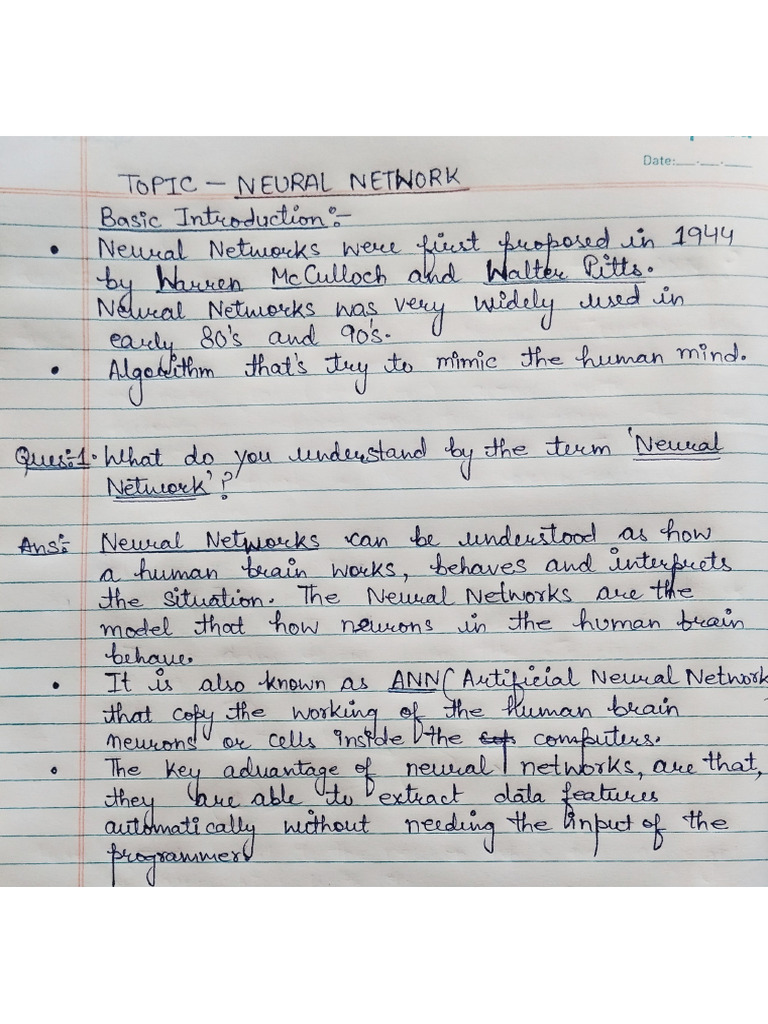 Date:__.__.__
TOPIC - NEURAL NETWORK
Basic Introduction:-
• Neural Networks were first proposed in 1944
by Warren McCulloch and Walter Pitts.
Neural Networks was very widely used in
early 80's and 90's.
• Algorithm that's try to mimic the human mind.
Ques:1. What do you understand by the term 'Neural
Network'?
Ans:- Neural Networks can be understood as how
a human brain works, behaves and interprets
the situation. The Neural Networks are the
model that how neurons in the human brain
behave.
• It is also known as ANN (Artificial Neural Network
that copy the working of the human brain
neurons or cells inside the computers.
• The key advantage of neural networks, are that,
they are able to extract data features
automatically without needing the input of the
programmer